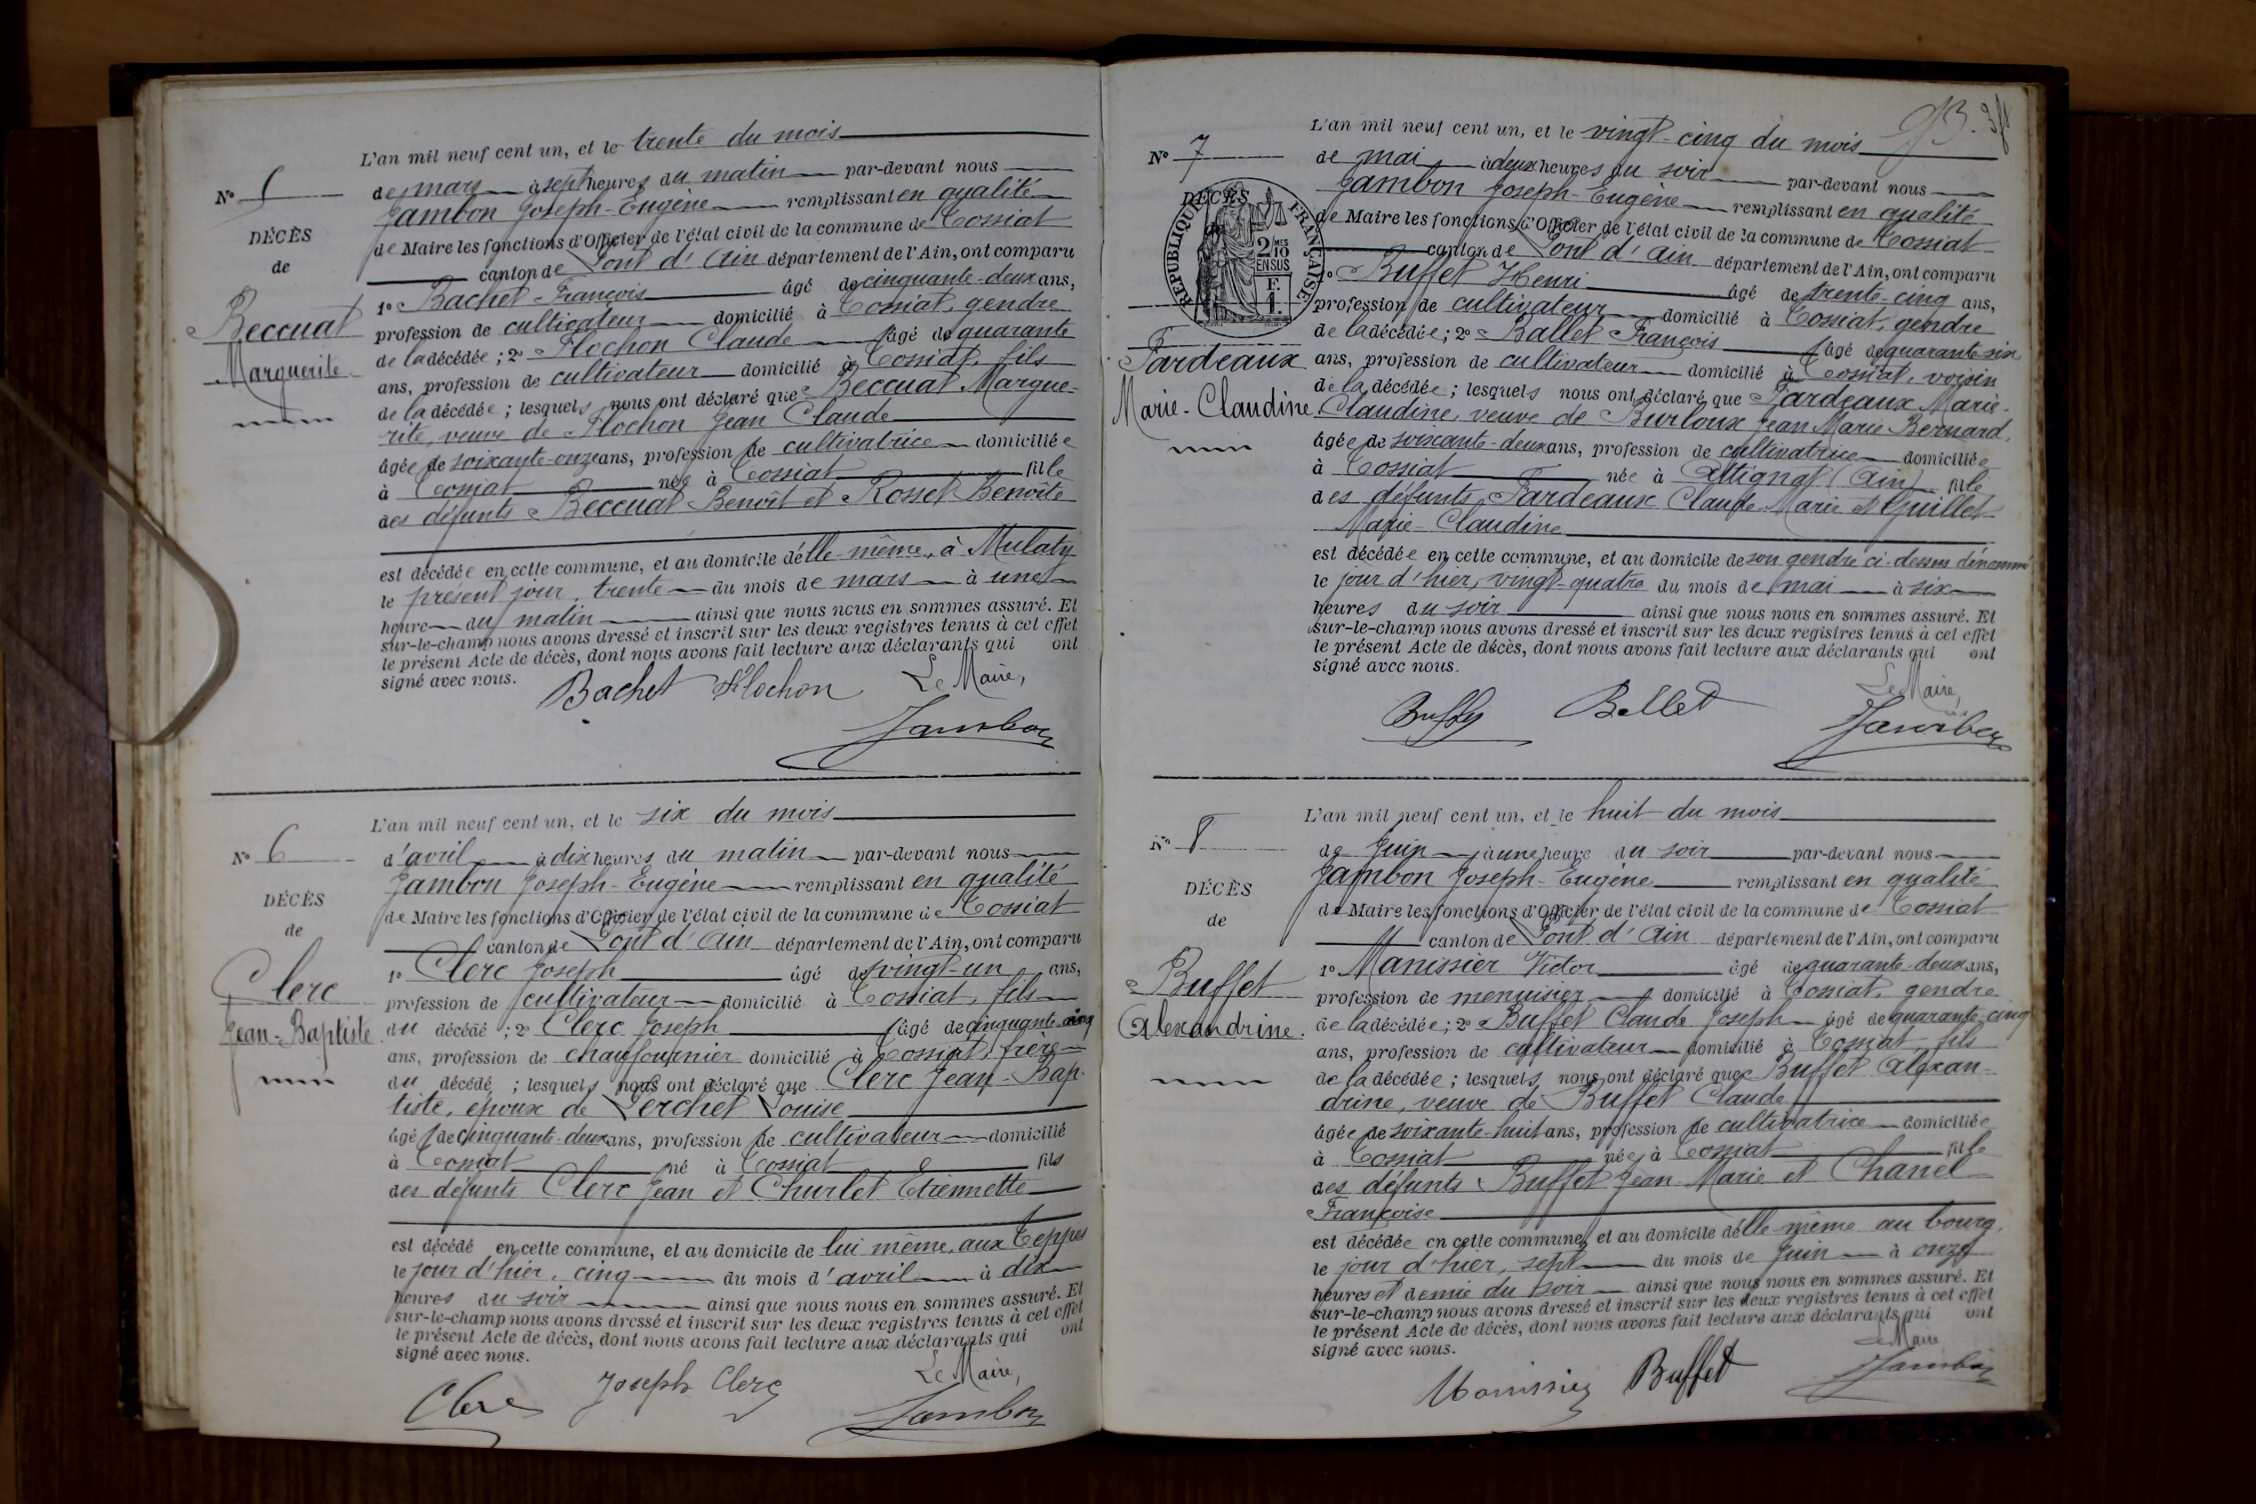 L'an mil neuf cent un, et le trente du mois
No 5
de mars à sept heures du matin par-devant nous
Jambon Joseph-Eugène remplissant en qualité
DÉCÈS
de Maire les fonctions d'Officier de l'état civil de la commune de Tossiat
de
canton de Pont d'Ain département de l'Ain, ont comparu
1o Bachet François âgé de cinquante-deux ans,
Beccuat
profession de cultivateur domicilié à Tossiat, gendre
de la décédée; 2o Flochon Claude âgé de quarante
Marguerite
ans, profession de cultivateur domicilié à Tossiat, fils
de la décédée; lesquels nous ont déclaré que Beccuat Margue-
rite, veuve de Flochon Jean Claude
âgée de soixante-onze ans, profession de cultivatrice domiciliée
à Tossiat née à Tossiat fille
des défunts Beccuat Benoît et Rosset Benoîte
est décédée en cette commune, et au domicile d'elle-même, à Mulaty
le présent jour, trente du mois de mars à une
heure du matin ainsi que nous nous en sommes assuré. Et
sur-le-champ nous avons dressé et inscrit sur les deux registres tenus à cet effet
le présent Acte de décès, dont nous avons fait lecture aux déclarants qui ont
signé avec nous.
Bachet Flochon Le Maire,
Jambon
L'an mil neuf cent un, et le six du mois
No 6
d'avril à dix heures du matin par-devant nous
Jambon Joseph-Eugène remplissant en qualité
DÉCÈS
de Maire les fonctions d'Officier de l'état civil de la commune de Tossiat
de
canton de Pont d'Ain département de l'Ain, ont comparu
1o Clerc Joseph âgé de vingt-un ans,
Clerc
profession de cultivateur domicilié à Tossiat, fils
Jean-Baptiste
du décédé; 2o Clerc Joseph âgé de cinquante-cinq
ans, profession de chaufournier domicilié à Tossiat, frère
du décédé; lesquels nous ont déclaré que Clerc Jean-Bap-
tiste, époux de Perchet Louise
âgé de cinquante-deux ans, profession de cultivateur domicilié
à Tossiat né à Tossiat fils
des défunts Clerc Jean et Churlet Etiennette
est décédé en cette commune, et au domicile de lui même, aux Teppes
le jour d'hier, cinq du mois d'avril à dix
heures du soir ainsi que nous nous en sommes assuré. Et
sur-le-champ nous avons dressé et inscrit sur les deux registres tenus à cet effet
le présent Acte de décès, dont nous avons fait lecture aux déclarants qui ont
signé avec nous.
Clerc Joseph Clerc Le Maire,
Jambon
L'an mil neuf cent un, et le vingt-cinq du mois
No 7
de mai à deux heures du soir par-devant nous
Jambon Joseph-Eugène remplissant en qualité
DÉCÈS
de Maire les fonctions d'Officier de l'état civil de la commune de Tossiat
de
RÉPUBLIQUE FRANÇAISE
2/10 MES
EN SUS
F.
1.
canton de Pont d'Ain département de l'Ain, ont comparu
1o Buffet Henri âgé de trente-cinq ans,
profession de cultivateur domicilié à Tossiat, gendre
de la décédée; 2o Ballet François âgé de quarante-six
Fardeaux
ans, profession de cultivateur domicilié à Tossiat, voisin
de la décédée; lesquels nous ont déclaré que Fardeaux Marie-
Marie-Claudine
Claudine, veuve de Burloux Jean Marie Bernard,
âgée de soixante-deux ans, profession de cultivatrice domiciliée
à Tossiat née à Attignat (Ain) fille
des défunts Fardeaux Claude-Marie et Guillet
Marie-Claudine
est décédée en cette commune, et au domicile de son gendre ci-dessus dénommé
le jour d'hier, vingt-quatre du mois de mai à six
heures du soir ainsi que nous nous en sommes assuré. Et
sur-le-champ nous avons dressé et inscrit sur les deux registres tenus à cet effet
le présent Acte de décès, dont nous avons fait lecture aux déclarants qui ont
signé avec nous.
Le Maire,
Buffet Ballet
Jambon
L'an mil neuf cent un, et le huit du mois
No 8
de juin à une heure du soir par-devant nous
Jambon Joseph-Eugène remplissant en qualité
DÉCÈS
de Maire les fonctions d'Officier de l'état civil de la commune de Tossiat
de
canton de Pont d'Ain département de l'Ain, ont comparu
1o Manissier Victor âgé de quarante-deux ans,
Buffet
profession de menuisier domicilié à Tossiat, gendre
Alexandrine.
de la décédée; 2o Buffet Claude Joseph âgé de quarante-cinq
ans, profession de cultivateur domicilié à Tossiat, fils
de la décédée; lesquels nous ont déclaré que Buffet Alexan-
drine, veuve de Buffet Claude
âgée de soixante-huit ans, profession de cultivatrice domiciliée
à Tossiat née à Tossiat fille
des défunts Buffet Jean-Marie et Chanel
Françoise
est décédée en cette commune, et au domicile d'elle-même au bourg,
le jour d'hier, sept du mois de juin à onze
heures et demie du soir ainsi que nous nous en sommes assuré. Et
sur-le-champ nous avons dressé et inscrit sur les deux registres tenus à cet effet
le présent Acte de décès, dont nous avons fait lecture aux déclarants qui ont
signé avec nous.
Le Maire
Manissier Buffet Jambon